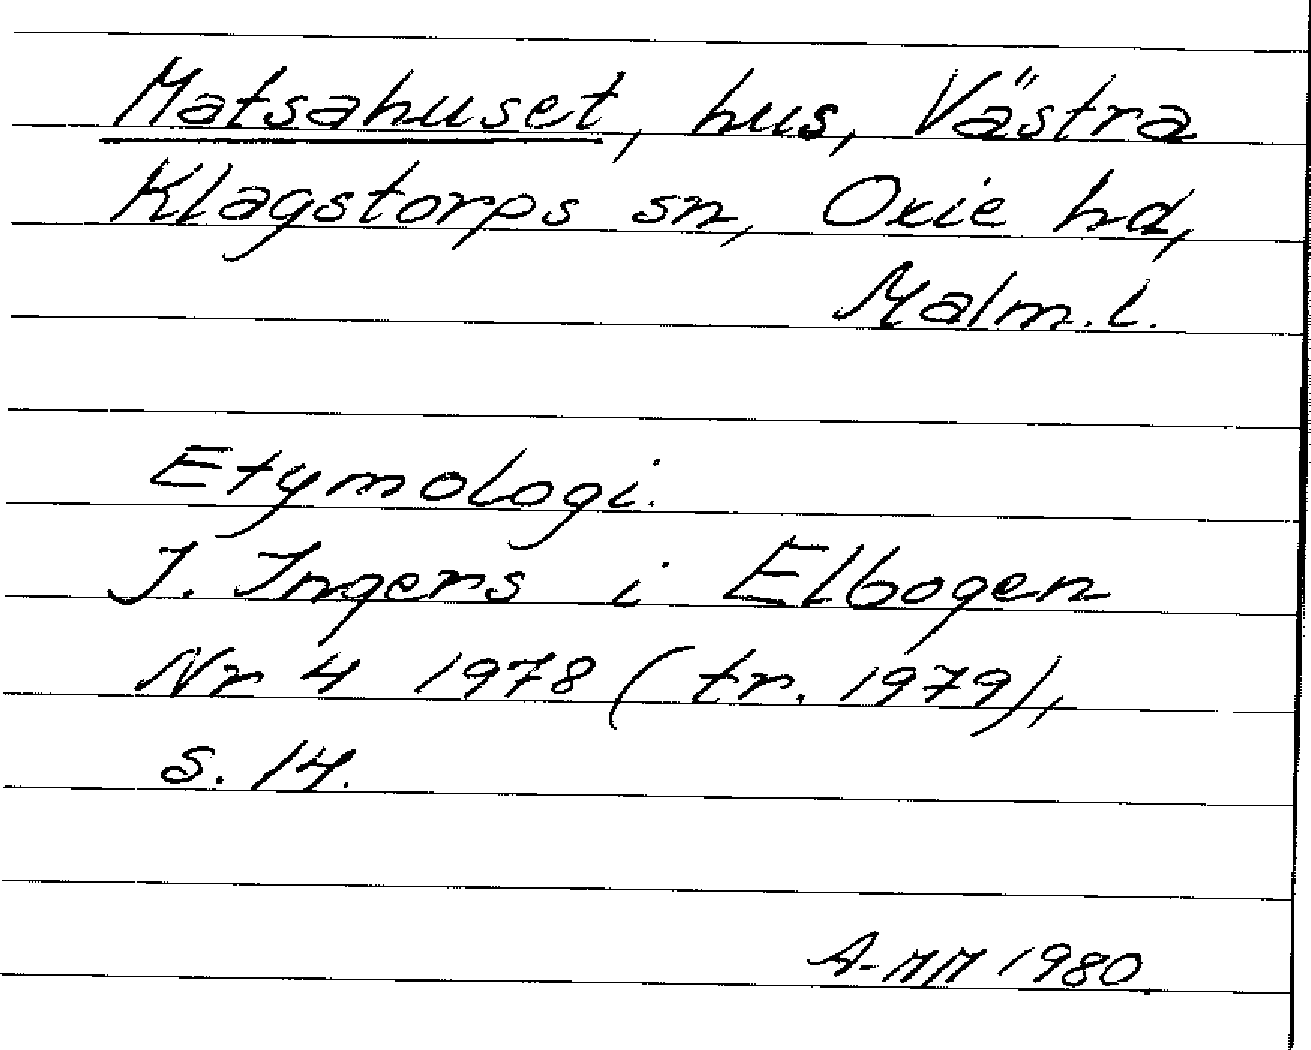 Matsahuset, hus, Västra
Klagstorps sn, Oxie hd,
Malm. l.
Etymologi.
I. Ingers i Elbogen
Nr 4 1978 (tr. 1979),
s. 14.
A-MM 1980.